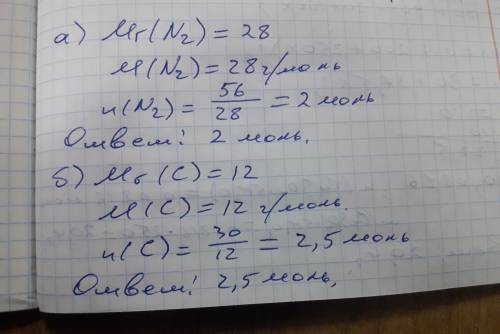 а) Mr(N2) = 28
M(N2) = 28 г/моль
n(N2) = 56/28 = 2 моль
Ответ: 2 моль.
б) Mr(C) = 12
M(C) = 12 г/моль.
n(C) = 30/12 = 2,5 моль
Ответ: 2,5 моль.